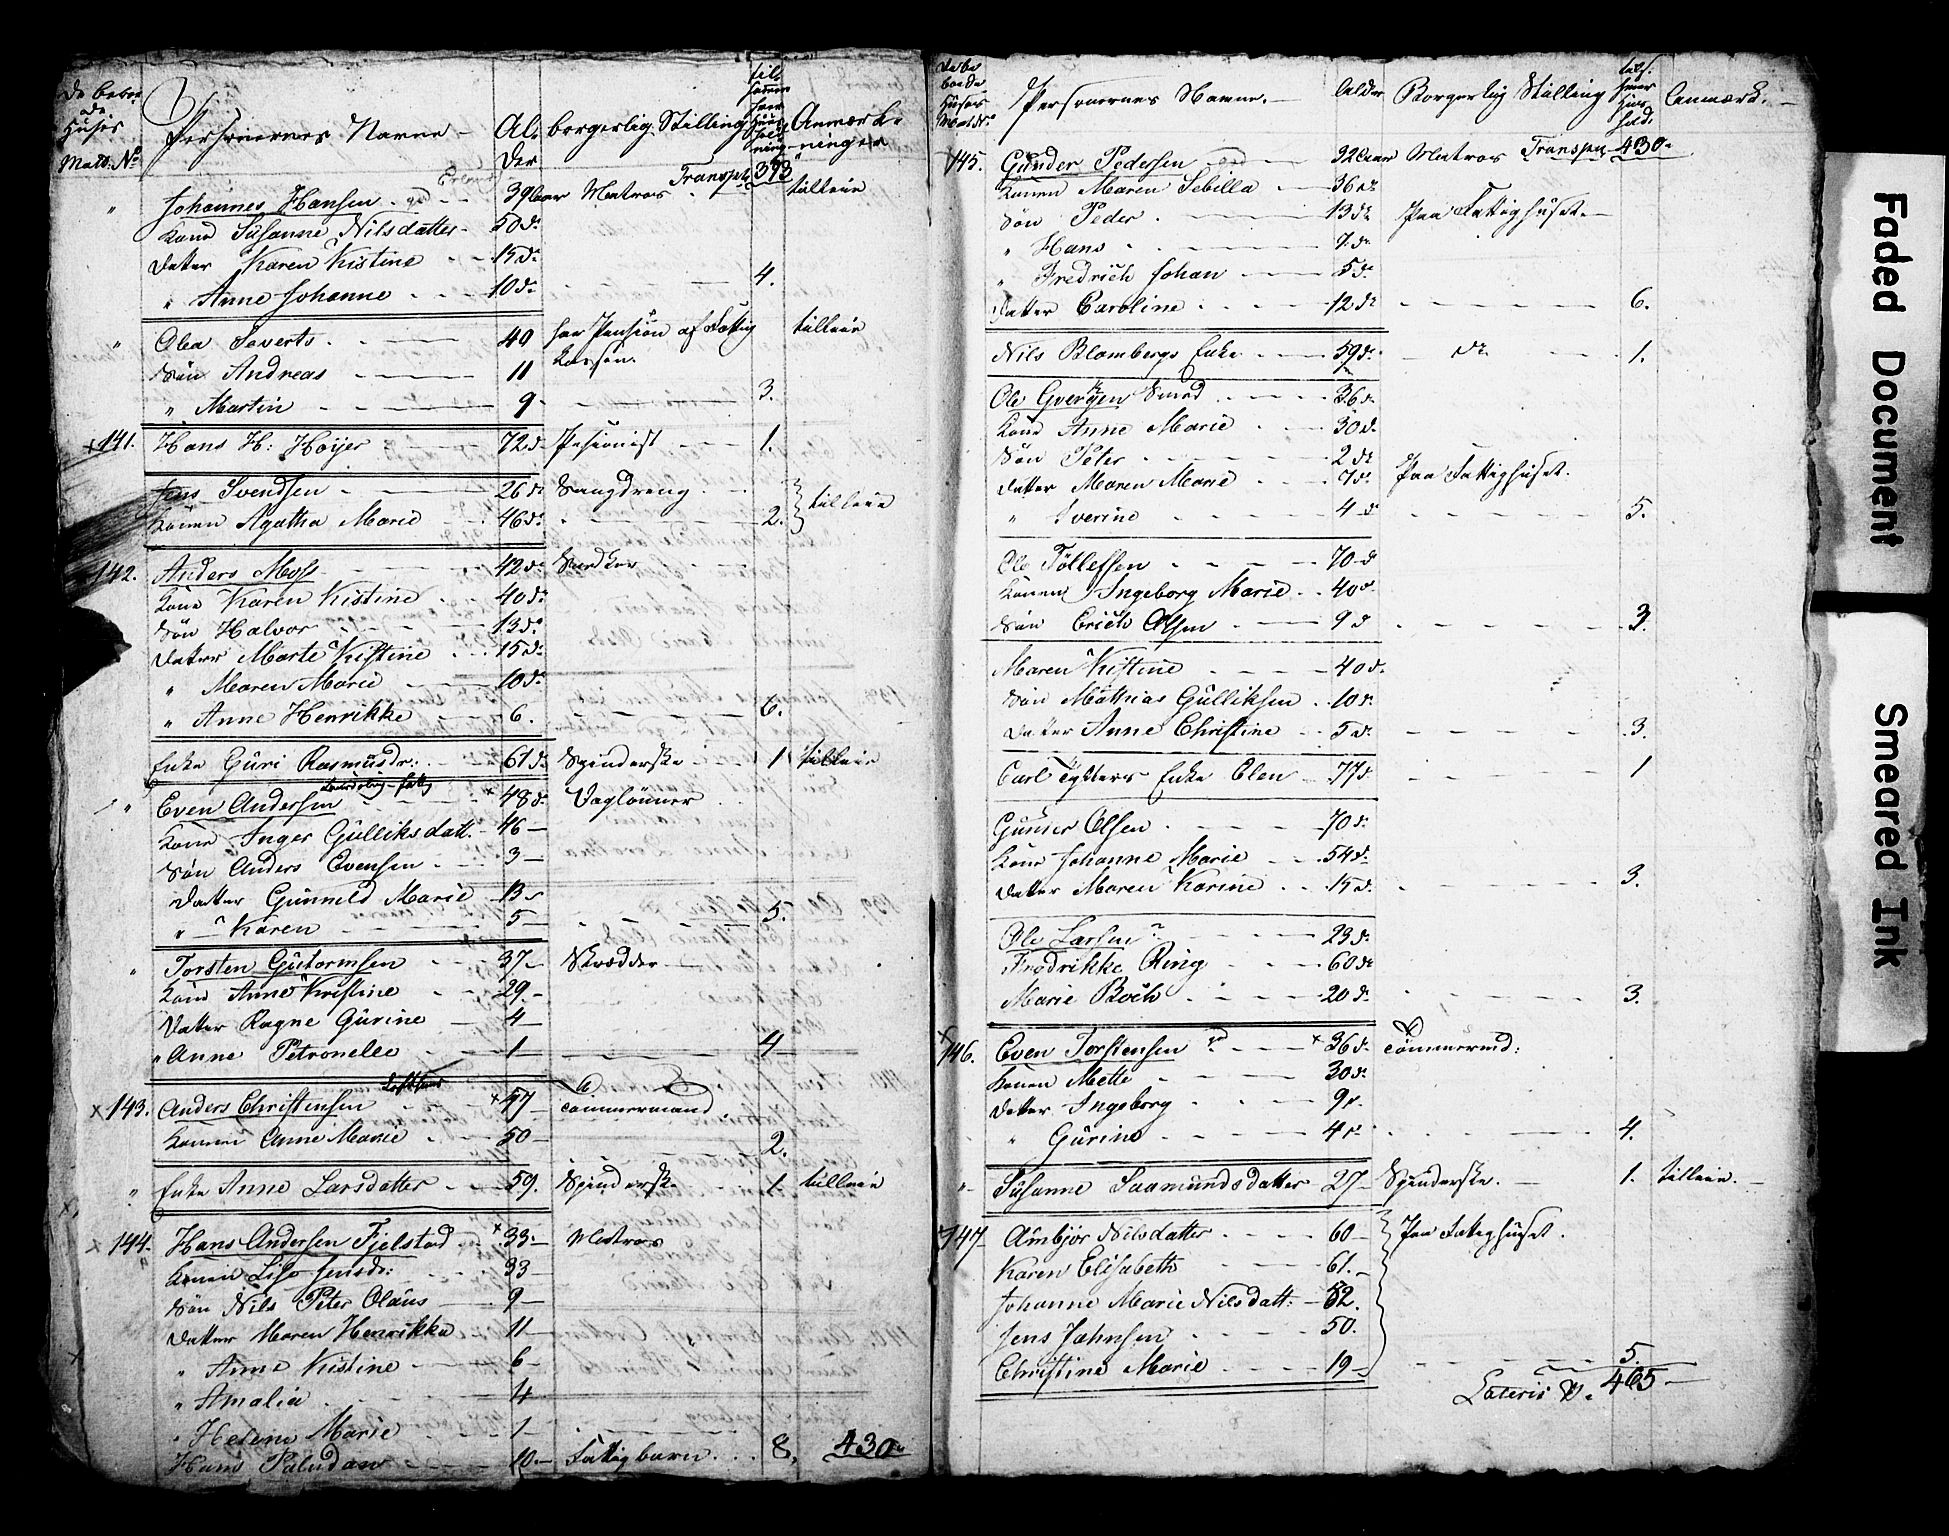 De beboe
de
Huses
Matr: No
Personernes Navne
Al-
der
borgerlig Stilling
Anmærk-
ninger
Transpt 393
" Johannes Hansen 39 aar Matros tilleie
Kone Susanne Nilsdatter 50 do
Datter Karen Kistine 15 do
" Anne Johanne 10 do 4.
" Olea Severts. 40 har Pension af Fattig tilleie
Kassen.
Søn Andreas 11
" Martin 9 3.
141. Hans H: Høyer 72 d Pensionist 1.
Jens Svendsen 26 do
Konen Agatha Marie 46 do 2. tilleie
142. Anders Moss 42 do
Kone Karen Kistine 40 do
Søn Halvor 13 do
Datter Marte Kistine 15 do
" Maren Marie 10 do
" Anne Henrikke 6. 6.
Enke Guri Rasmusdr: 61 d Spinderske 1 tilleie
" Even Andersen 48 do Daglønner
Kone Inger Gulliksdatt. 46
Søn Anders Evensen 3
Datter Gunneld Marie 13
" Karen 5 5.
" Torsten Gutormsen 37 Skrædder
Kone Anne Kristine 29.
Datter Ragne Gurine 4
" Anne Petronelle 1 4
x 143. Anders Christensen x 47 Tømmermand
Konen Anne Marie 50 2.
" Enke Anne Larsdatter 59. Spinderske 1. tilleie
x 144. Hans Andersen Fjelstad x 33 Matros
Konen Lise Jensdr: 33
Søn Nils Peter Olaus 9
Datter Maren Henrikke 11
" Anne Kistine 6
" Amalia 4
" Helene Marie 1
Hans Paludan 10 Fattigbarn 8. 430
De be
boede
Huses
Matr No
Personernes Navne. Alder Borgerlig Stilling Anmærk.
145. Gunder Pedersen 32 aar Matros Transpt 430
Konen Maren Sebilla 36 do
Søn Peder 13 do Paa Fattighuset.
" Hans 7 do
" Fredrich Johan 5 do
Datter Caroline 12 do 6.
Nils Blombergs Enke 59 do do 1.
Ole Smed 36 d
Kone Anne Marie 30 d.
Søn Peter 2 do
Datter Maren Marie 7 do. Paa Fattighuset.
" Iverine 4 d 5.
Ole Tøllefsen 70 d
Konen Ingeborg Marie 40 d
Søn Erich Olsen 9 d 3.
Maren Kistine 40 d.
Søn Mathias Gulliksen 10 d.
Datter Anne Christine 5 d. 3.
Carl Enke Elen 77 d 1
Gunder Olsen 70 d.
Kone Johanne Marie 54 d.
Datter Maren Karine 15 d. 3.
Ole Larsen 23 d.
Fredrikke Ring 60 do
Marie Boch 20 d. 3.
x 146. Even Torstensen x 36 d. Tømmermd:
Konen Mette 30 d.
Datter Ingeborg 9 d.
" Gurine 4 d 4.
" Susanne Saamundsdatter 27 Spinderske. 1. tilleie.
x 147 Ambjør Nilsdatter 60 Paa Fattighuset.
Karen Elisabeth 61.
Johanne Marie Nilsdatt: 52.
Jens Jahnsen 50.
Christine Marie 19 5.
Lateris 465
Faded Document
Smeared Ink